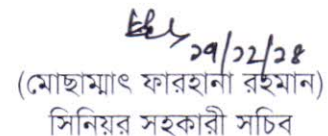 ২৭/১২/২৪
(মোছাম্মাৎ ফারহানা রহমান)
সিনিয়র সহকারী সচিব